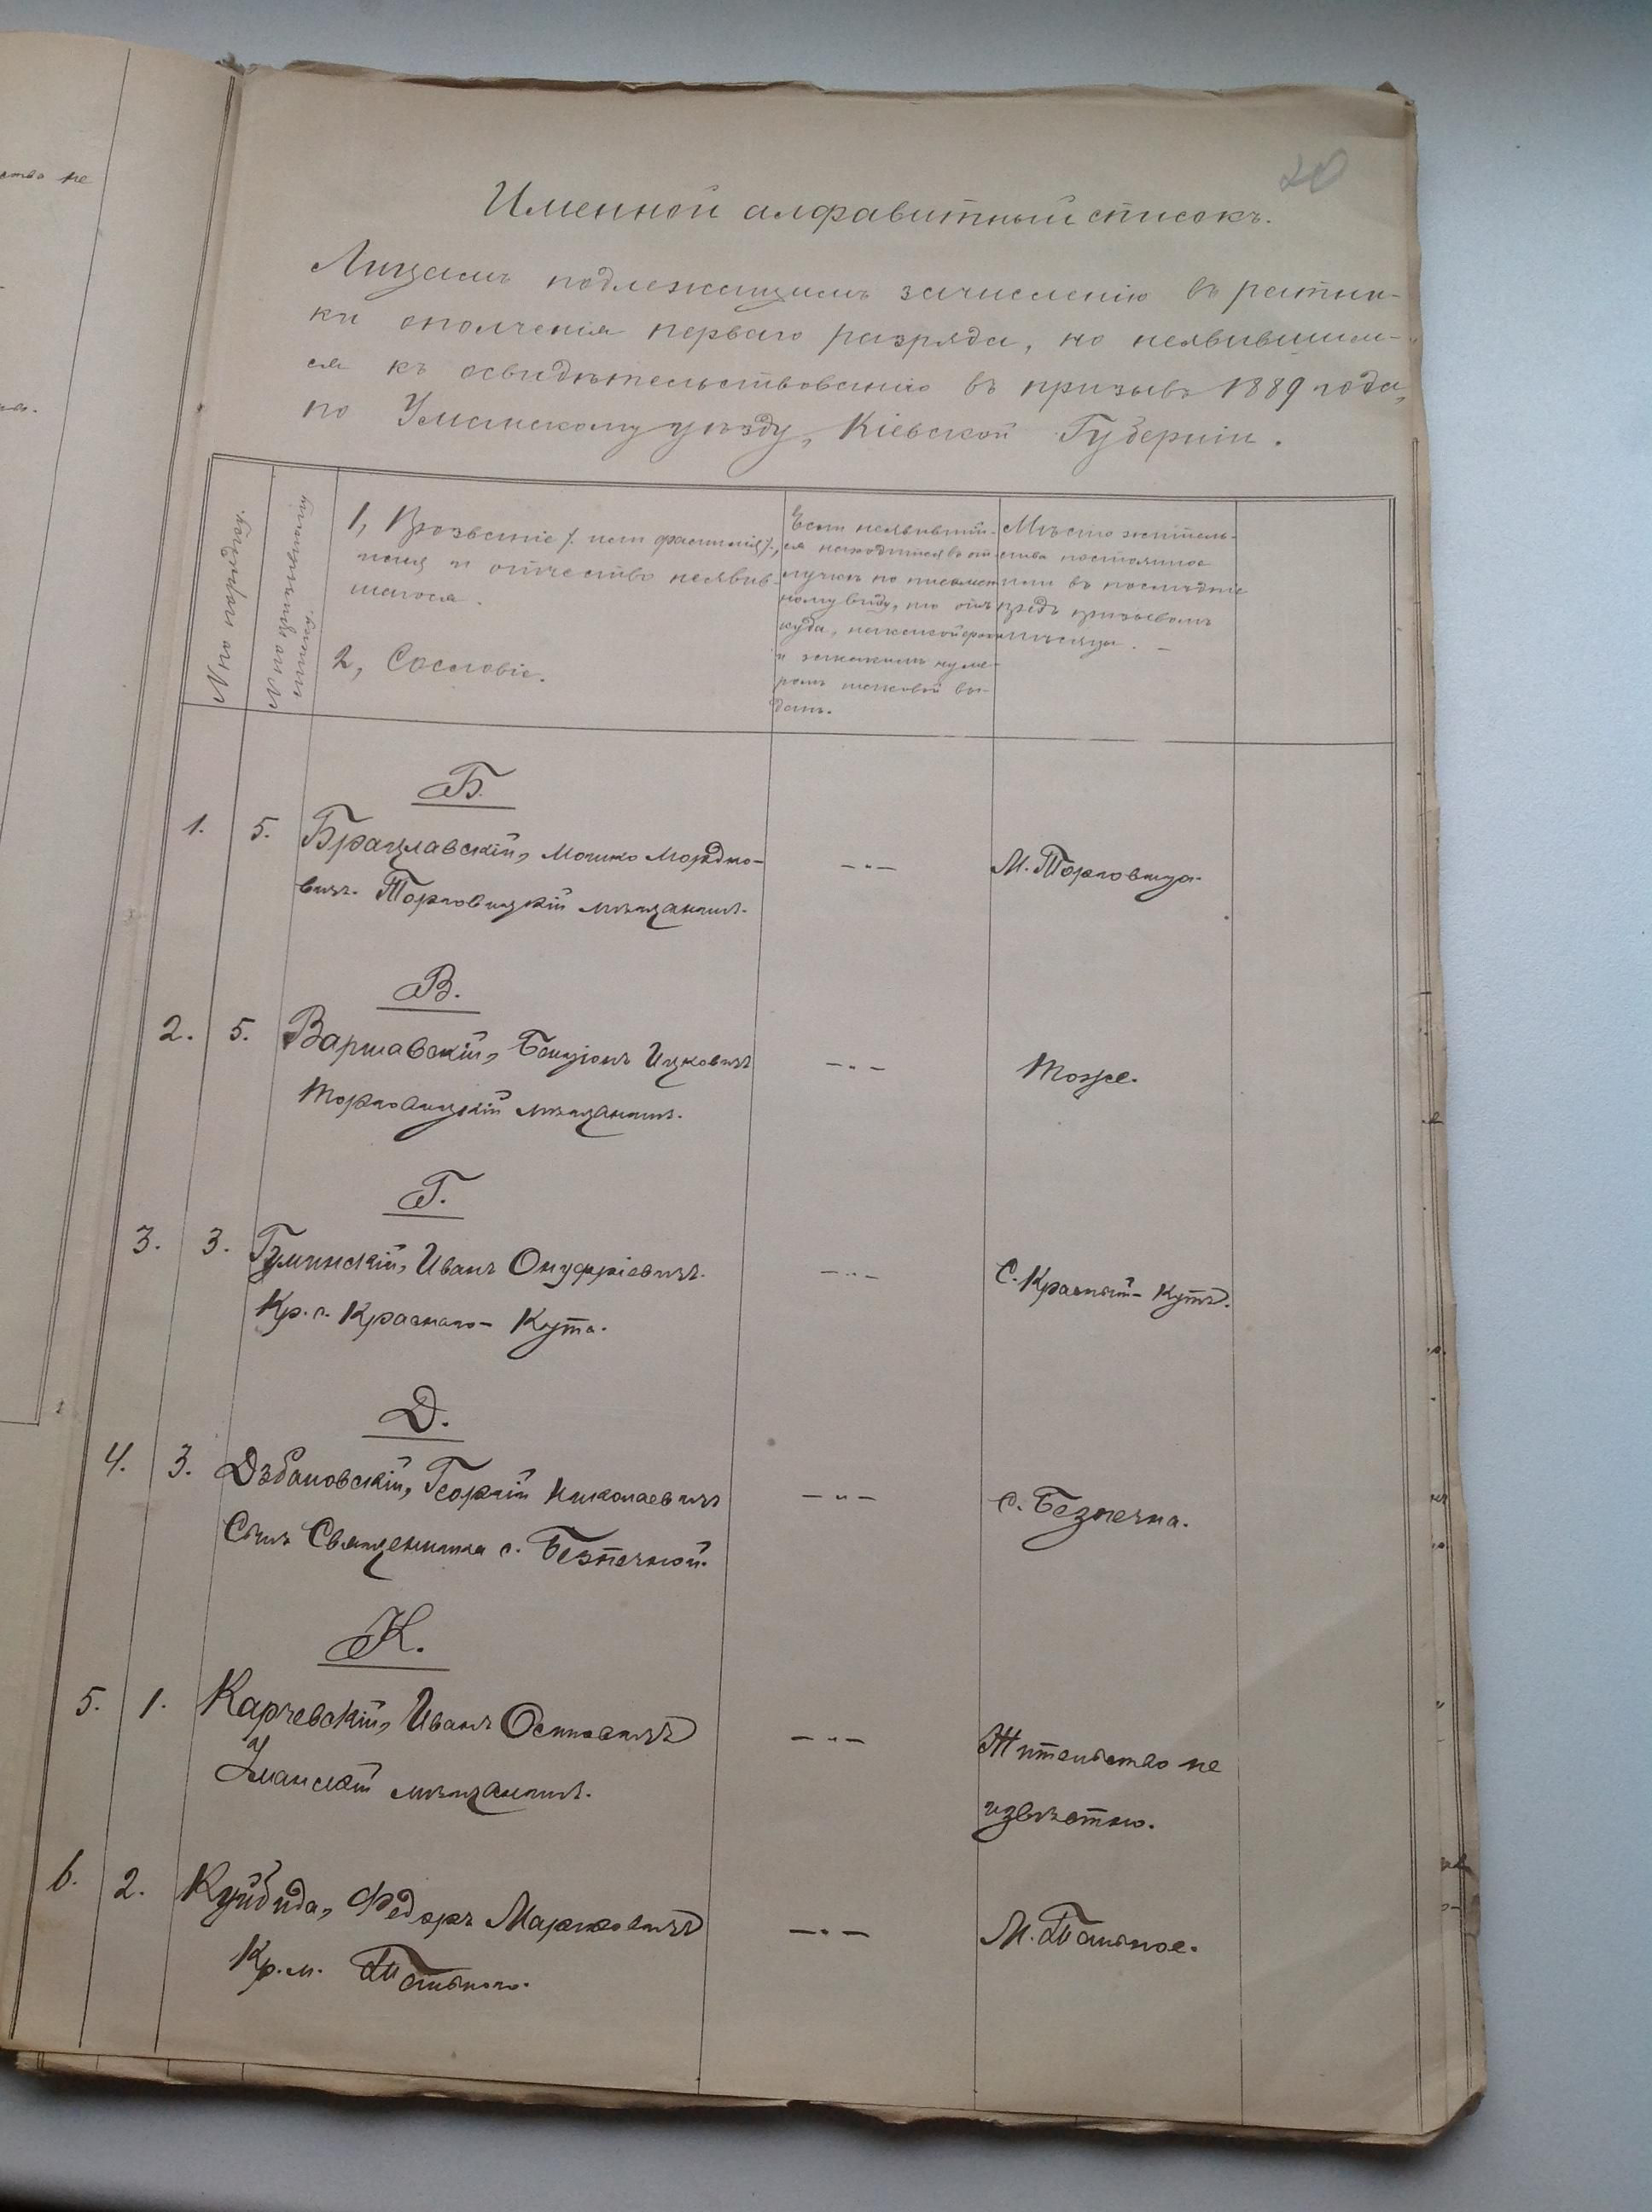 ство не
20
Именной алфавитный списокъ.
Лицамъ подлежащимъ зачисленію въ ратни-
ки ополченія перваго разряда, но неявившим-
ся къ освидѣтельствованію въ призывъ 1889 года,
по Уманскому уѣзду, Кіевской Губерніи.
№№ по порядку.
№№ по
1, Прозваніе /: или фамилія :/,
имя и отчество неявив-
шагося.
2, Сословіе.
Если неявившій-
ся находится въ от-
лучкѣ по письмен-
ному виду, то отъ
куда, на какой срокъ
и за какимъ нуме-
ромъ таковой вы-
данъ.
Мѣсто житель-
ства постоянное
или въ послѣдніе
предъ призывомъ
мѣсяцы. –
Б.
1. 5. Брацлавскій, Мошко Мордко-
вичъ. Торговицкій мѣщанинъ.
— " —
М. Торговица.
В.
2. 5. Варшавскій, Бенціонъ Ицковичъ
Торговицкій мѣщанинъ.
— " —
Тоже.
Г.
3. 3. Гулинскій, Иванъ Онуфріевичъ.
Кр. с. Краснаго-Кута.
— " —
С. Красный-Кутъ.
Д.
4. 3. Дзбановскій, Георгій Николаевичъ
Сынъ Священника с. Безпечной.
— " —
с. Безпечна.
К.
5. 1. Карчевскій, Иванъ Осиповичъ
Уманскій мѣщанинъ.
— " —
Жительство не
извѣстно.
6. 2. Куйбида, Федоръ Марковичъ
Кр. м. Тального.
— " —
М. Тальное.